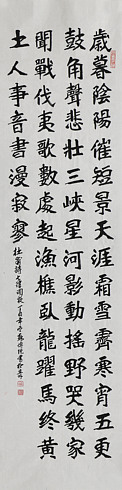 歲暮陰陽催短景天涯霜雪霽寒宵五更
鼓角聲悲壯三峽星河影動搖野哭幾家
聞戰伐夷歌數處起漁樵臥龍躍馬終黃
土人事音書漫寂寥
杜甫詩